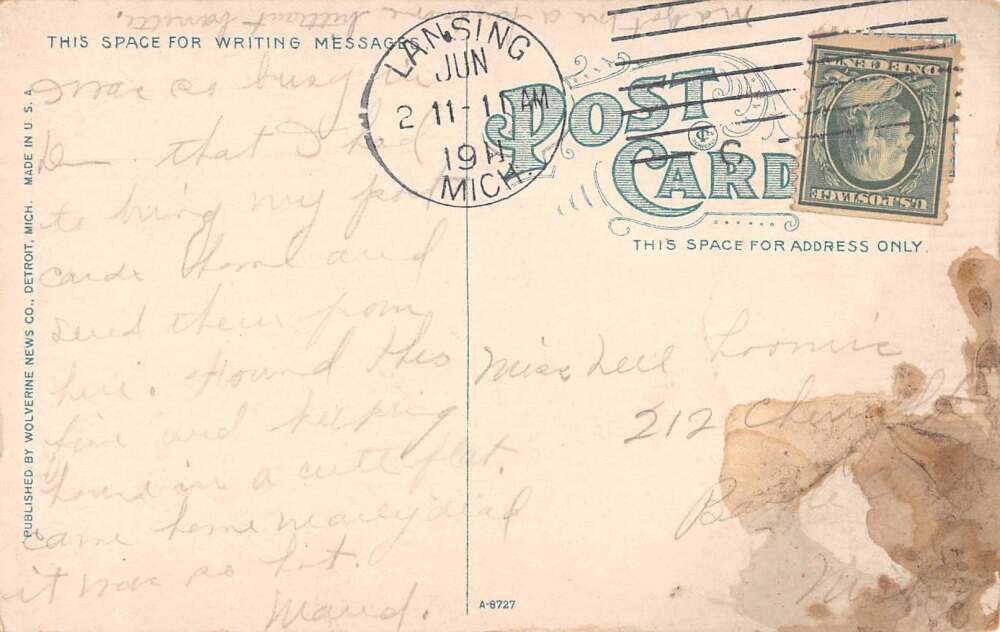 THIS SPACE FOR WRITING MESSAGES
POST
CARD
THIS SPACE FOR ADDRESS ONLY.
LANSING
JUN
2 11-11 AM
1911
MICH.
ONE CENT
U.S. POSTAGE
PUBLISHED BY WOLVERINE NEWS CO., DETROIT, MICH. MADE IN U.S.A.
I was so busy
that I had
to bring my
cards home and
send them from
here. Found
fine and keeping
house in a cute flat.
came home nearly dead
it was so hot.
Maud.
Miss Nell Loomis
212
A-8727